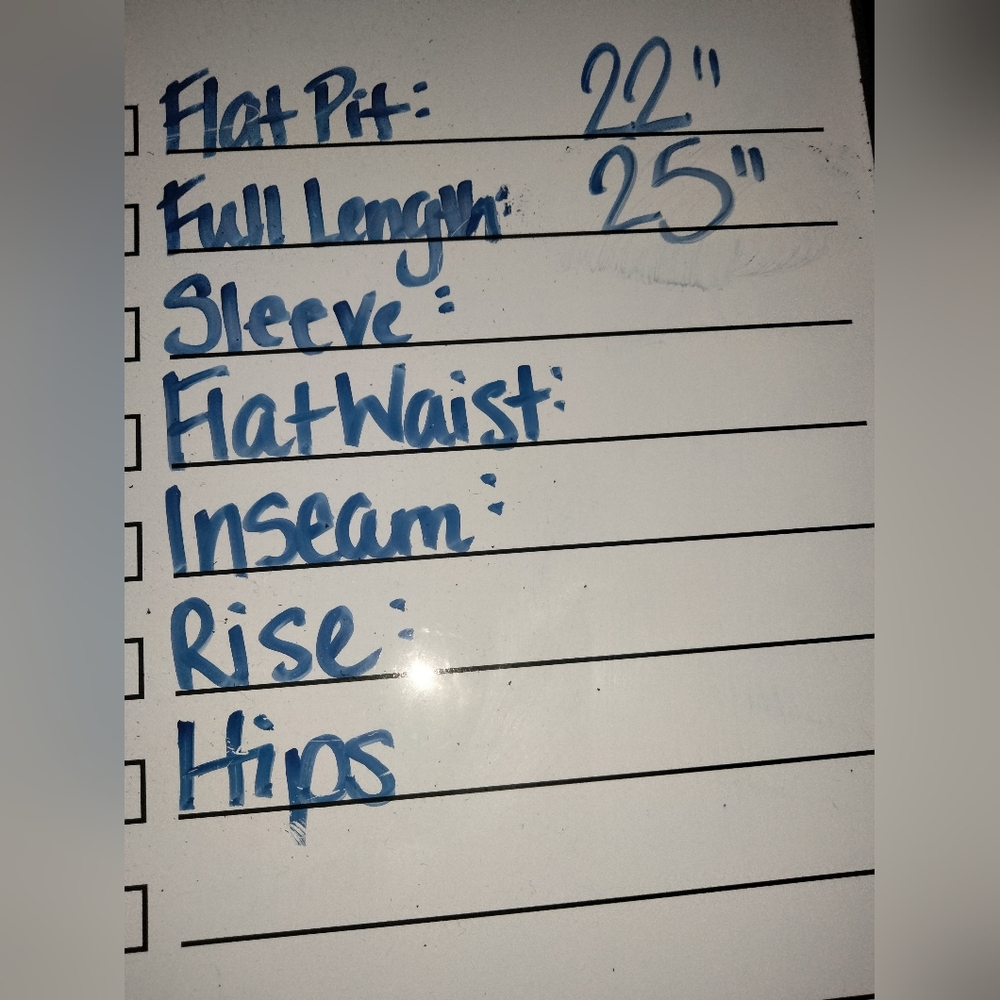 Flat Pit: 22"
Full Length: 25"
Sleeve:
Flat Waist:
Inseam:
Rise:
Hips